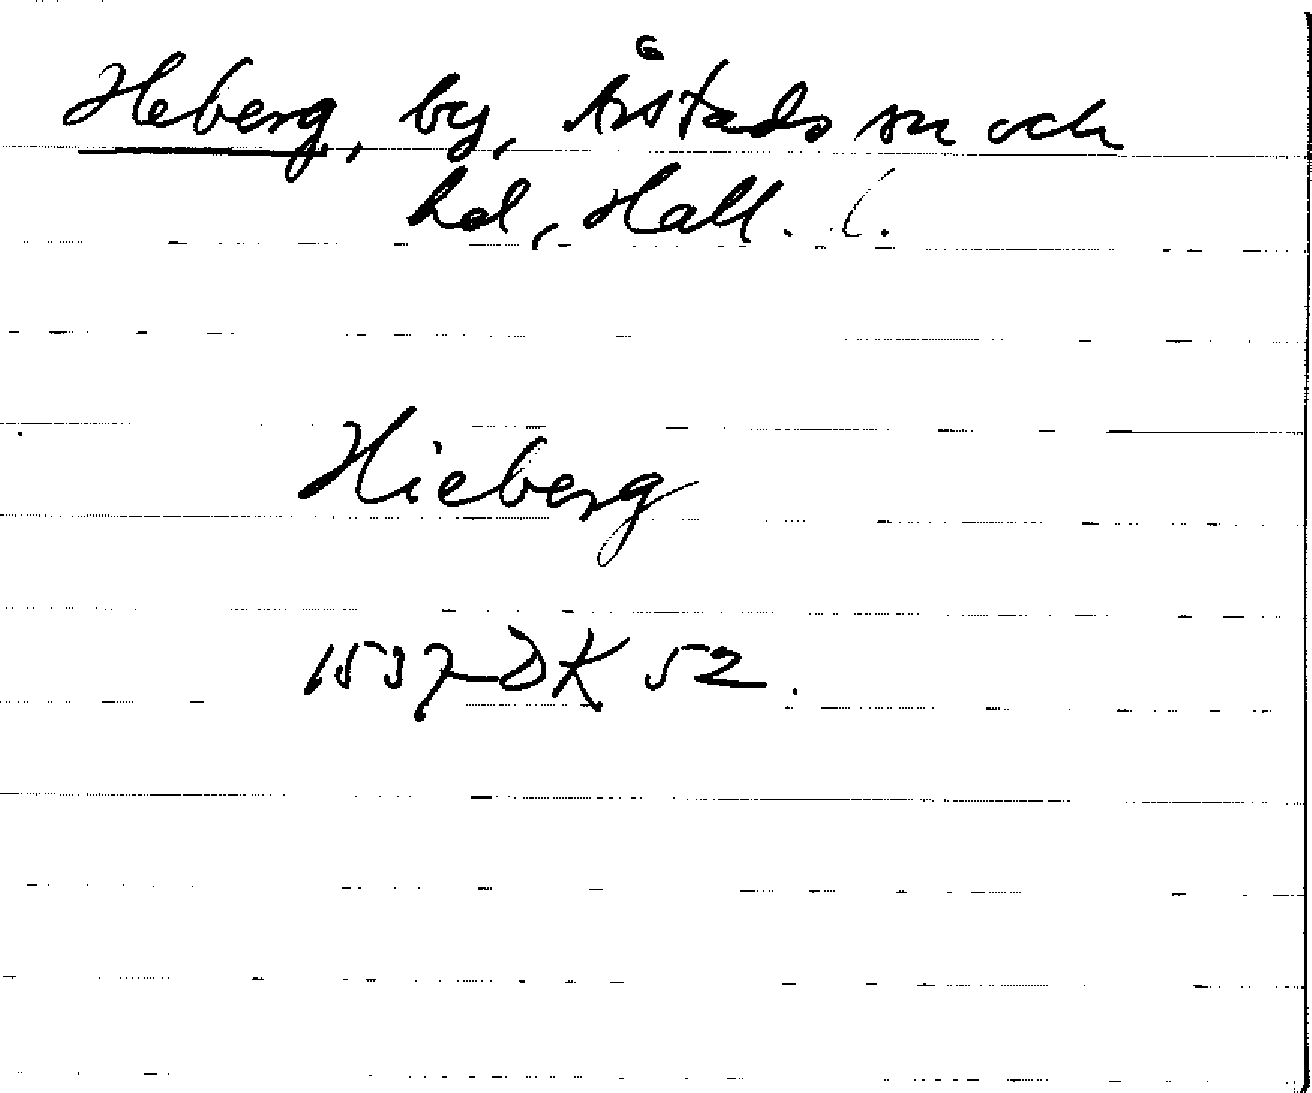 Heberg, by, Årstads sn och
hd, Hall. (.
Hieberg
1537 DK 52.